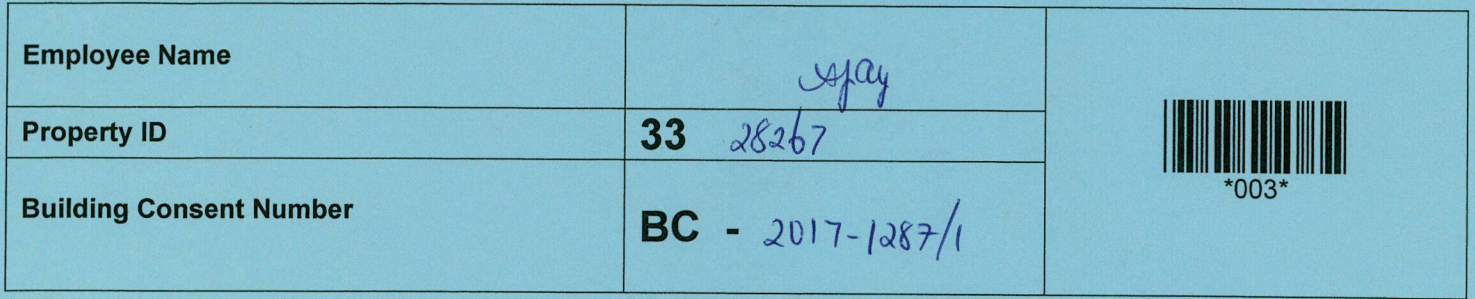 Employee Name Ajay
Property ID 33 28267
Building Consent Number BC - 2017-1287/1
*003*